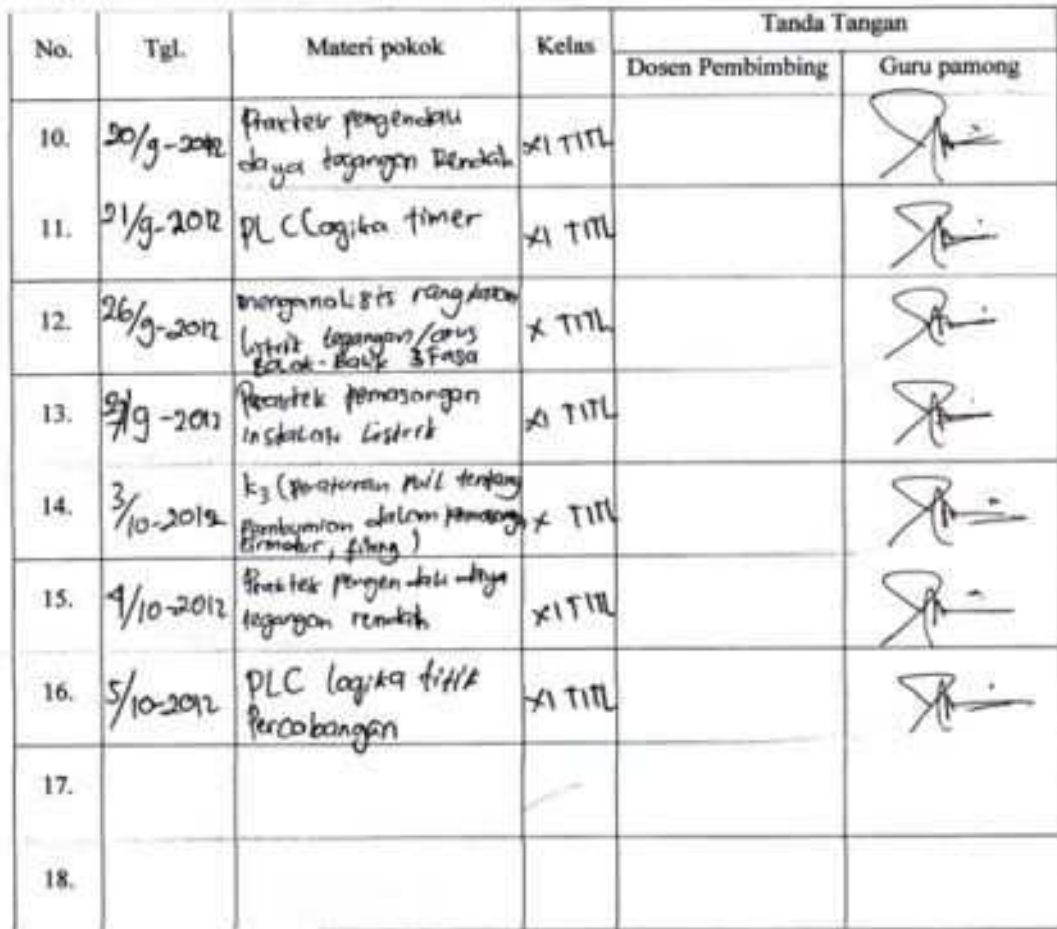 No. Tgl. Materi pokok Kelas Tanda Tangan
Dosen Pembimbing Guru pamong
10. 20/9-2012 Praktek pengendali
daya tegangan Rendah XI TITL
11. 21/9-2012 PLC Logika timer XI TITL
12. 26/9-2012 menganalisis rangkaian
listrik tegangan/arus
Bolak-Balik 3 Fasa X TITL
13. /9-2012 Praktek pemasangan
instalasi Listrik XI TITL
14. 3/10-2012 k3 (peraturan puil tentang
Pembumian dalam
armatur, ) X TITL
15. 4/10-2012 Praktek pengendali daya
tegangan rendah XI TITL
16. 5/10-2012 PLC logika titik
Percabangan XI TITL
17.
18.